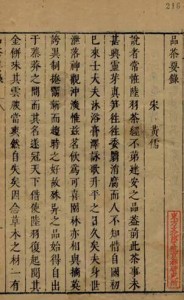 品茶要錄
宋 黃儒
說者常怪陸羽茶經不第建安之品蓋前此茶事未
甚興靈芽真筍往往委翳消腐而人不知惜自國初
已來士大夫沐浴膏澤詠歌昇平之日久矣夫身世
洒落神觀沖澹惟茲茗飲為可喜園林亦相與摘英
誇異制捲鬻新而趨時之好故殊異之品始得自出
于蓁莽之間而其名遂冠天下借使陸羽復起閱其
金餅味其雲腴當爽然自失矣因念草木之材一有